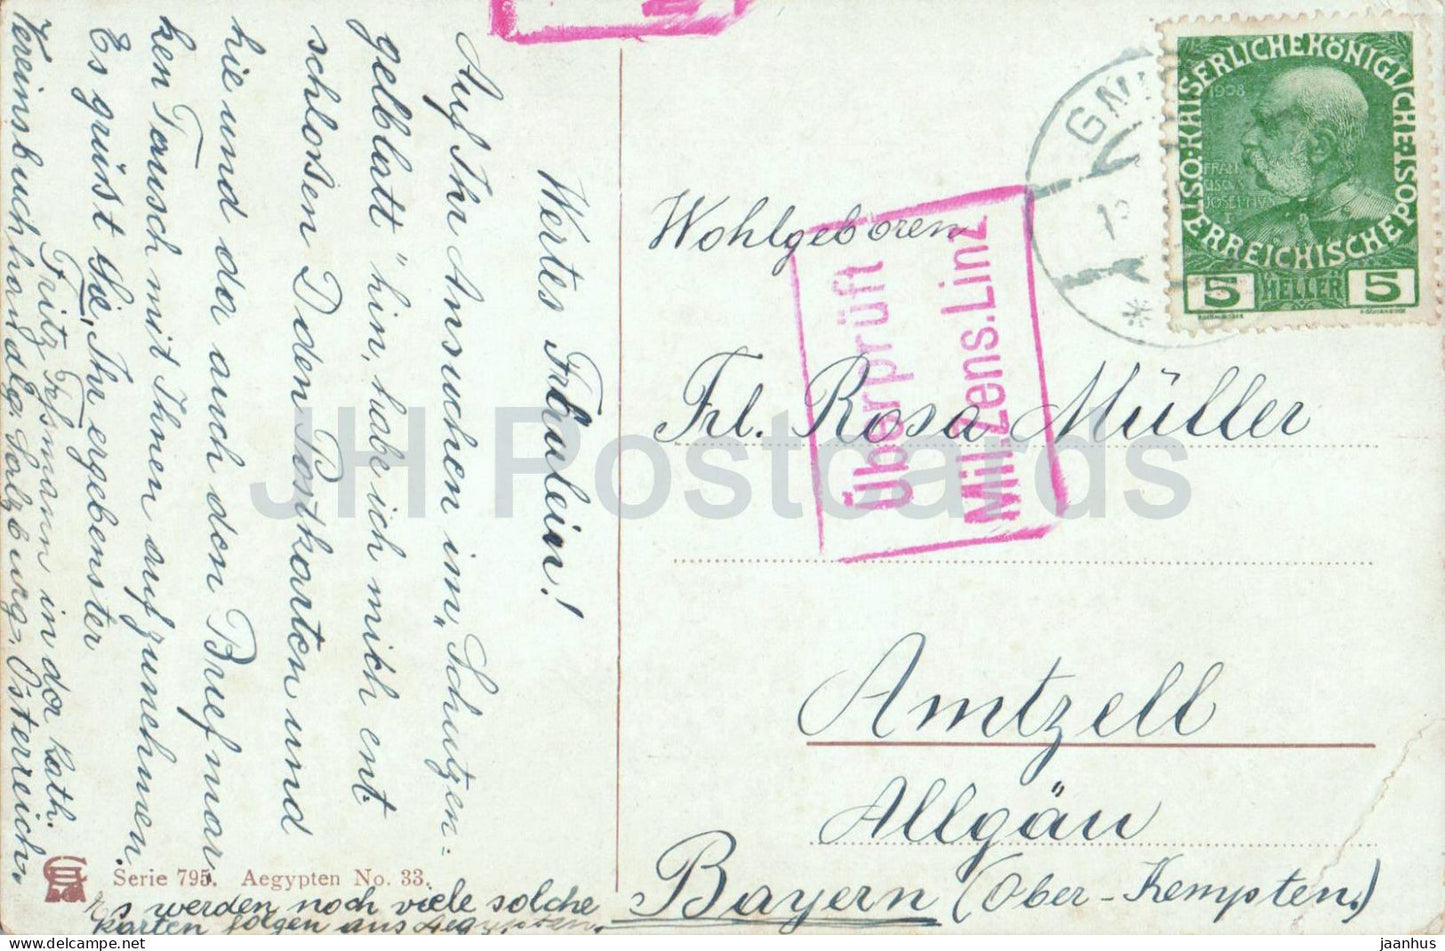 Wertes Fräulein!
Auf Ihr Ansuchen im „Schutzen-
gelblatt" hin, habe ich mich ent
schloßen D den Postkarten und
hie und da auch den Brefmar
ken Tausch mit Ihnen aufzunehmen.
Es grüßt Sie, Ihr ergebenster
Fritz in der kath.
Vereinsbuchhandlg Salzburg, Österreich.
Es werden noch viele solche
Karten folgen aus Aegypten.
Serie 795. Aegypten No. 33.
Wohlgeboren
Frl. Rosa Müller
Amtzell
Allgäu
Bayern (Ober-Kempten.)
Überprüft
Mil.Zens.Linz
GM
KAISERLICHE KÖNIGLICHE
ÖSTERREICHISCHE POST
1908
FRAN
CISCUS
JOSEPHUS
I
5 HELLER 5
JH Postcards
jaanhus @ hippostcard.com